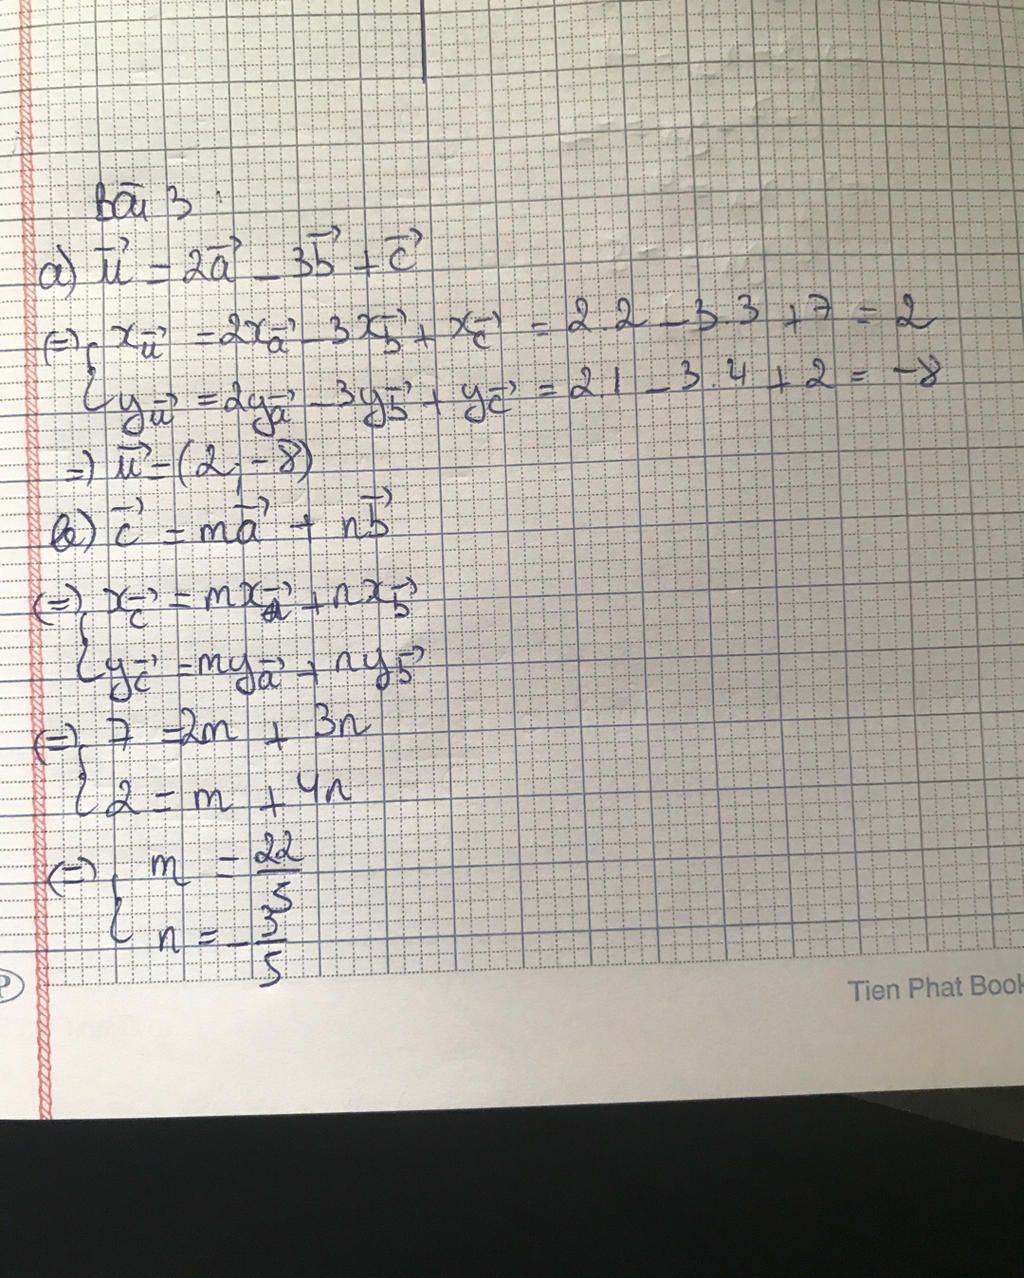 Bài 3:
a) u⃗ = 2a⃗ - 3b⃗ + c⃗
(=) { x_u⃗ = 2x_a⃗ - 3x_b⃗ + x_c⃗ = 2.2 - 3.3 + 7 = 2
y_u⃗ = 2y_a⃗ - 3y_b⃗ + y_c⃗ = 2.1 - 3.4 + 2 = -8
=) u⃗ = (2; -8)
b) c⃗ = ma⃗ + nb⃗
(=) { x_c⃗ = mx_a⃗ + nx_b⃗
y_c⃗ = my_a⃗ + ny_b⃗
(=) { 7 = 2m + 3n
2 = m + 4n
(=) { m = 22/5
n = -3/5
Tien Phat Book